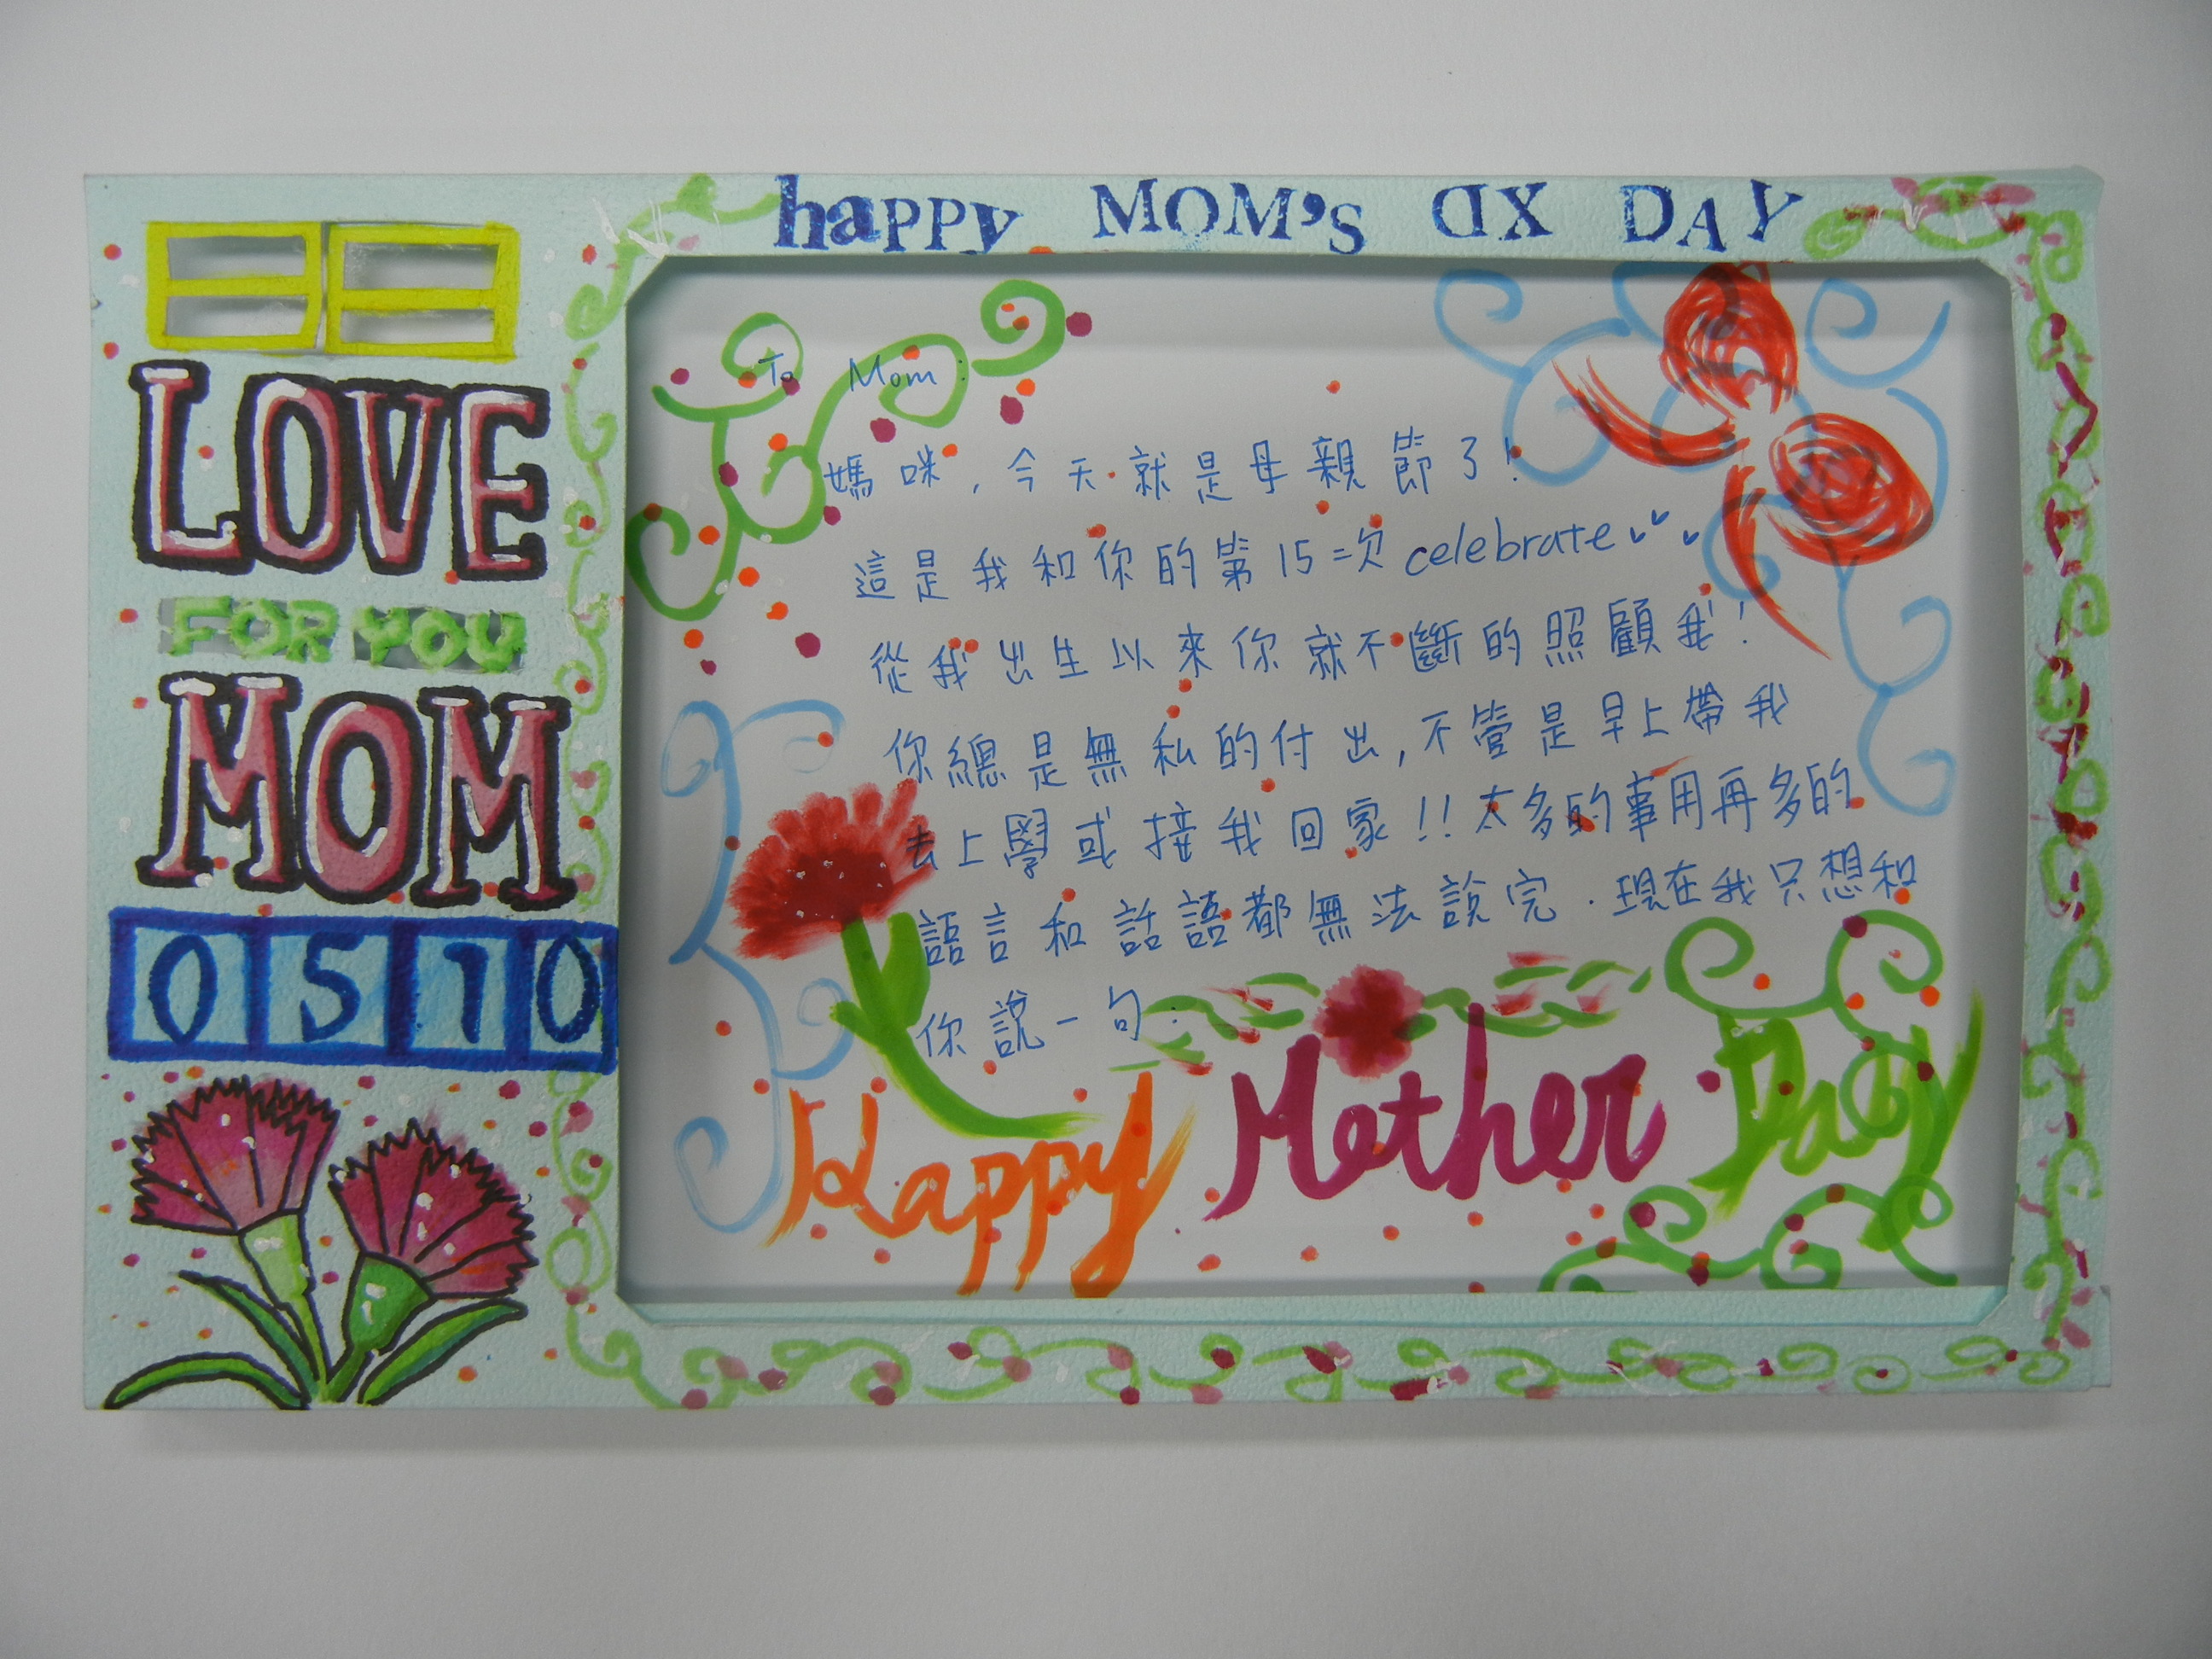 happy MOM's XD DAY
LOVE
FOR YOU
MOM
0510
To Mom:
媽咪,今天就是母親節了!
這是我和你的第15次celebrate
從我出生以來你就不斷的照顧我!
你總是無私的付出,不管是早上帶我
去上學或接我回家!!太多的事用再多的
語言和話語都無法說完.現在我只想和
你說一句:
Happy Mother Day